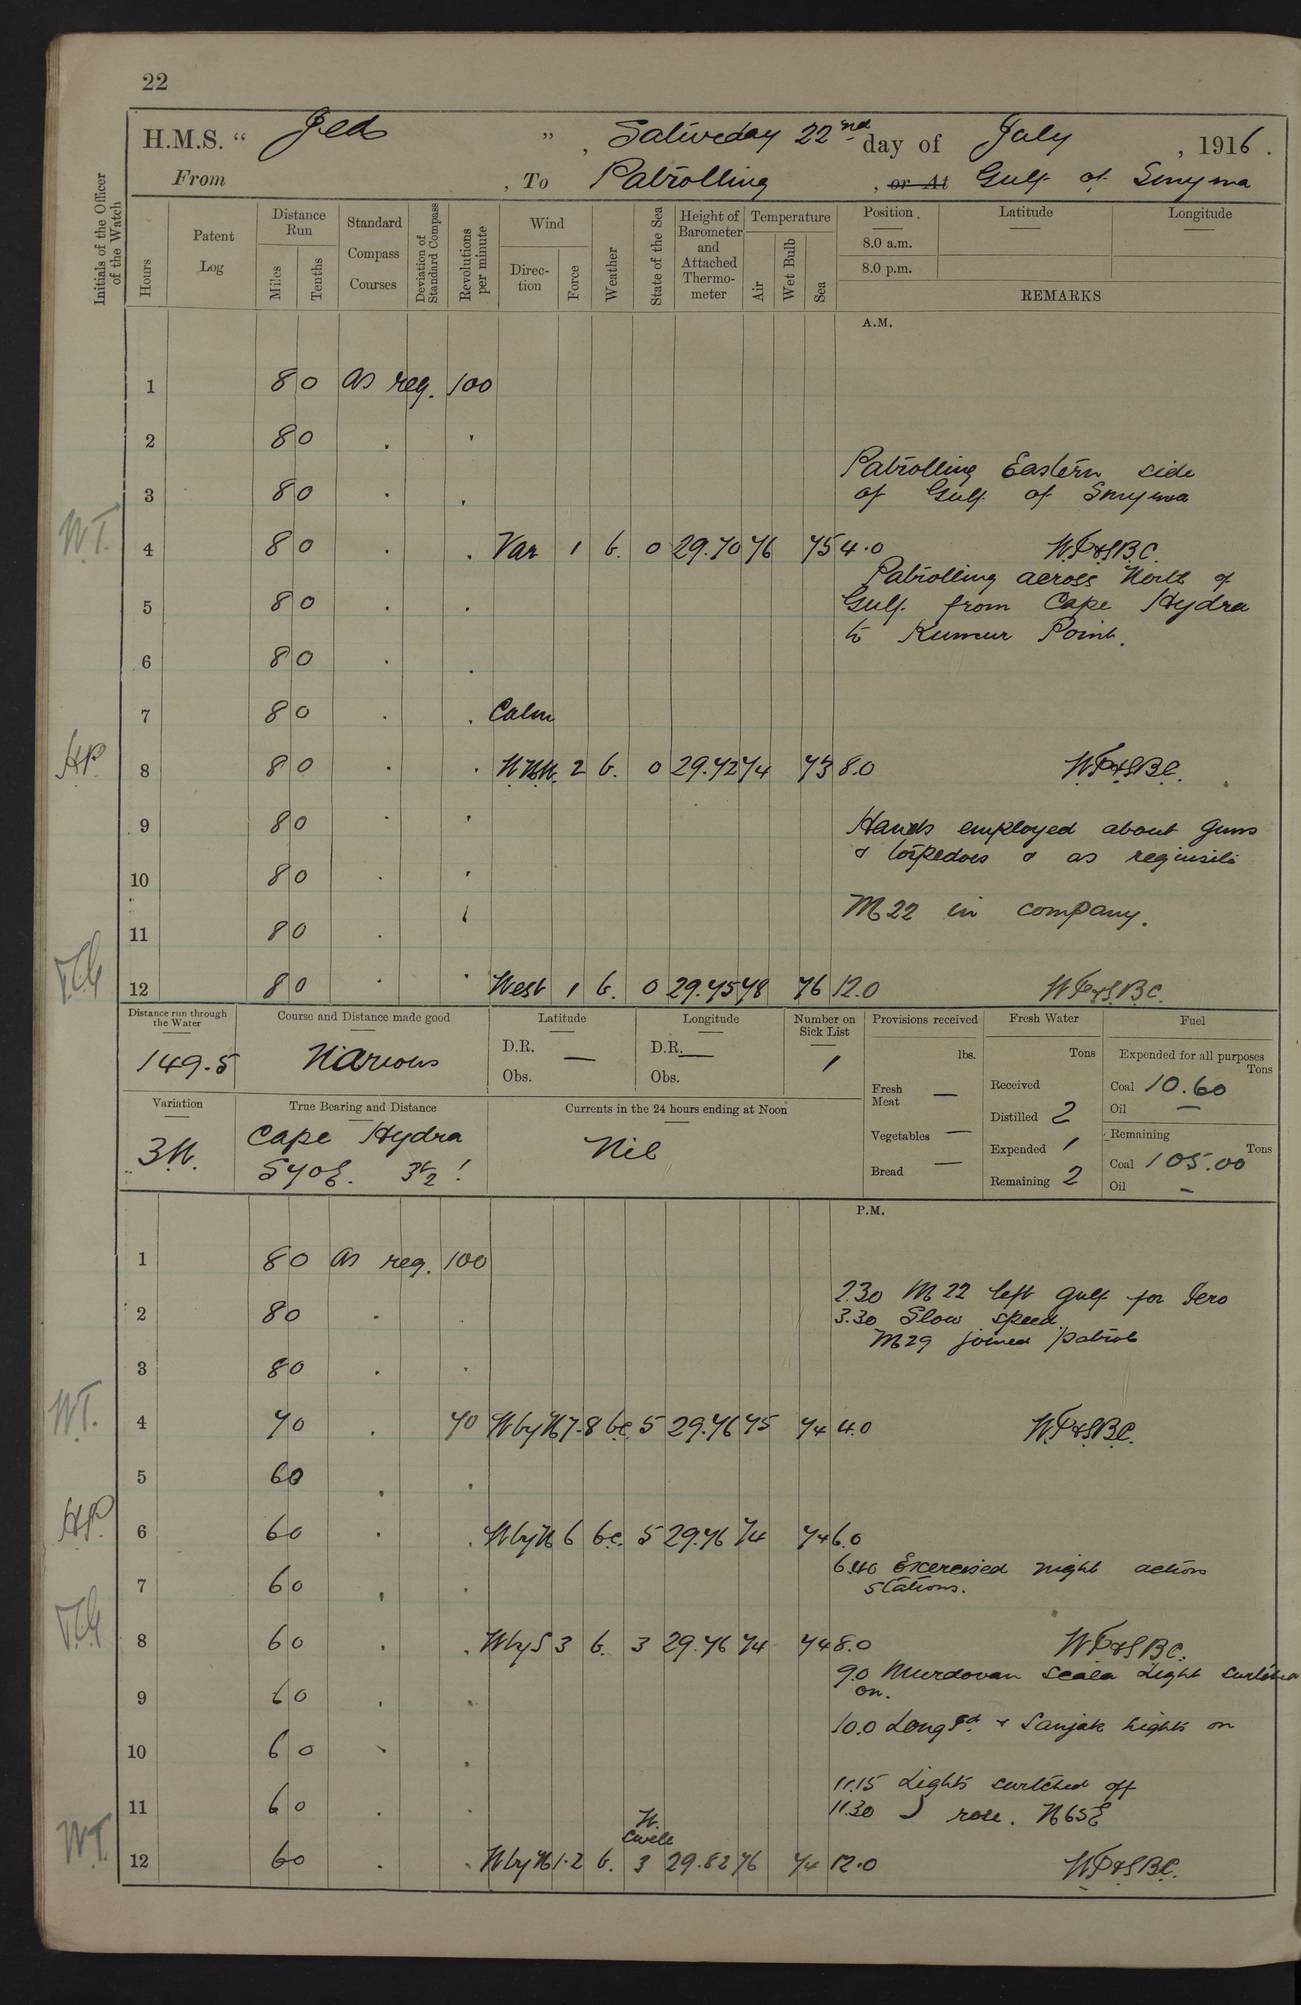 22
H.M.S. “ Jed ”, Saturday 22nd day of July, 1916.
From , To Patrolling , or At Gulf of Smyrna
Initials of the Officer of the Watch
Hours
Patent Log
Distance Run
Miles
Tenths
Standard Compass Courses
Deviation of Standard Compass
Revolutions per minute
Wind
Direction
Force
Weather
State of the Sea
Height of Barometer and Attached Thermometer
Temperature
Air
Wet Bulb
Sea
Position. Latitude Longitude
8.0 a.m.
8.0 p.m.
REMARKS
A.M.
1 8 0 as req. 100
2 8 0 . '
Patrolling Eastern side
3 8 0 . , of Gulf of Smyrna
W.T. 4 8 0 . . Var 1 b. 0 29.70 76 75 4.0 W.P.&S.B.C.
Patrolling across North of
5 8 0 . . Gulf from Cape Hydra
to Kumur Point.
6 8 0 . .
7 8 0 . . Calm
HP. 8 8 0 . . N.N.W. 2 b. 0 29.72 74 73 8.0 W.P.&S.B.C.
9 8 0 . ' Hands employed about guns
& torpedoes & as requisite
10 8 0 . '
M 22 in company.
11 8 0 .
12 8 0 . . West 1 b. 0 29.75 78 76 12.0 W.P.&S.B.C.
Distance run through the Water
149.5
Course and Distance made good
Various
Latitude
D.R. —
Obs.
Longitude
D.R. —
Obs.
Number on Sick List
1
Provisions received
lbs.
Fresh Meat —
Vegetables —
Bread —
Fresh Water
Tons
Received
Distilled 2
Expended 1
Remaining 2
Fuel
Expended for all purposes
Tons
Coal 10.60
Oil —
Remaining
Tons
Coal 105.00
Oil —
Variation
3W.
True Bearing and Distance
Cape Hydra
S70E. 3½'
Currents in the 24 hours ending at Noon
Nil
P.M.
1 8 0 as req. 100
2.30 M 22 left gulf for Iero
2 8 0 . 3.30 Slow speed.
M29 joined patrol
3 8 0 . .
W.T. 4 7 0 . 70 W by N 7-8 bc. 5 29.76 75 74 4.0 W.P.&S.B.C.
5 6 0 . .
HP. 6 6 0 . . W by N 6 bc. 5 29.76 74 74 6.0
6.40 Excercised night action
7 6 0 . . stations.
8 6 0 . . W by S 3 b. 3 29.76 74 74 8.0 W.P.&S.B.C.
9.0 Murdovan Scala Light switched
9 6 0 . . on.
10.0 Long Id. & Sanjak lights on
10 6 0 . .
11.15 Lights switched off
11 6 0 . . 11.30 ☽ rose. N65E
W.
Swell
W.T. 12 6 0 . . W by N 1-2 b. 3 29.82 76 74 12.0 W.P.&S.B.C.